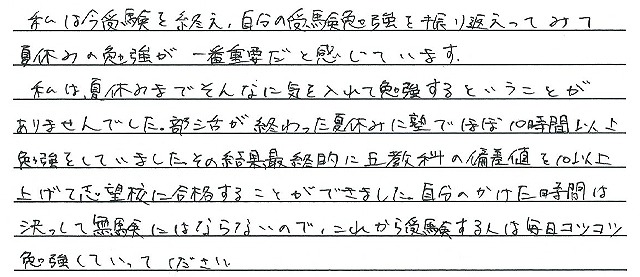 私は今受験を終え、自分の受験勉強を振り返えってみて
夏休みの勉強が一番重要だと感じています。
私は夏休みまでそんなに気を入れて勉強するということが
ありませんでした。部活が終わった夏休みに塾でほぼ10時間以上
勉強をしていました。その結果最終的に五教科の偏差値を10以上
上げて志望校に合格することができました。自分のかけた時間は
決っして無験にはならないので、これから受験する人は毎日コツコツ
勉強していってください